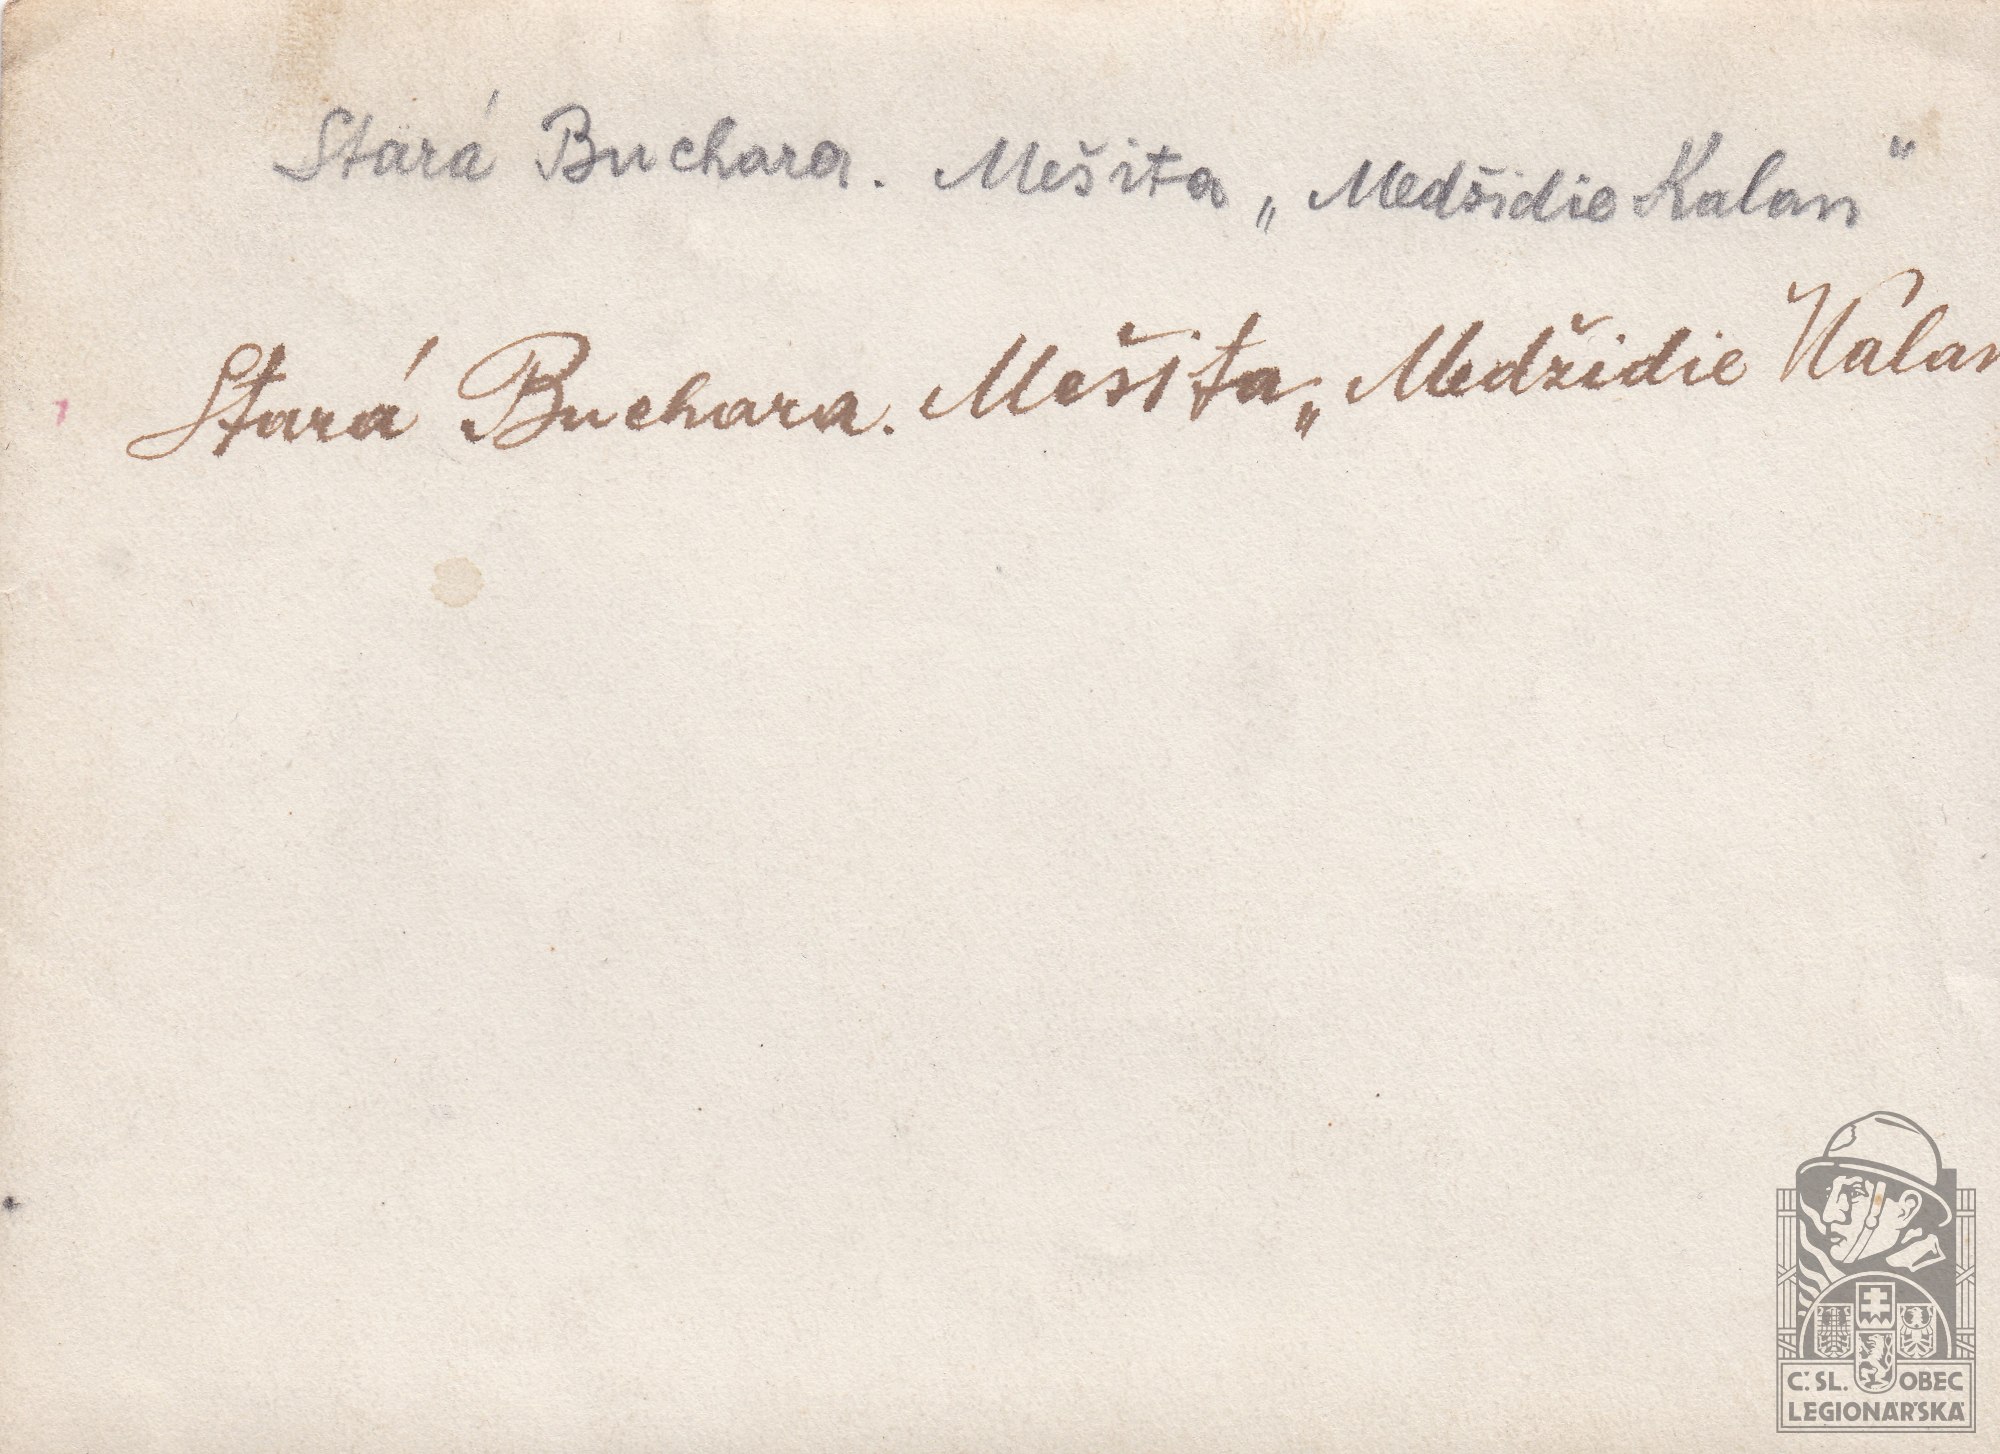 Stará Buchara. Mešita „Medšidie Kalan“
Stará Buchara. Mešita „Medžidie Kalan
Č. SL. OBEC
LEGIONÁŘSKÁ